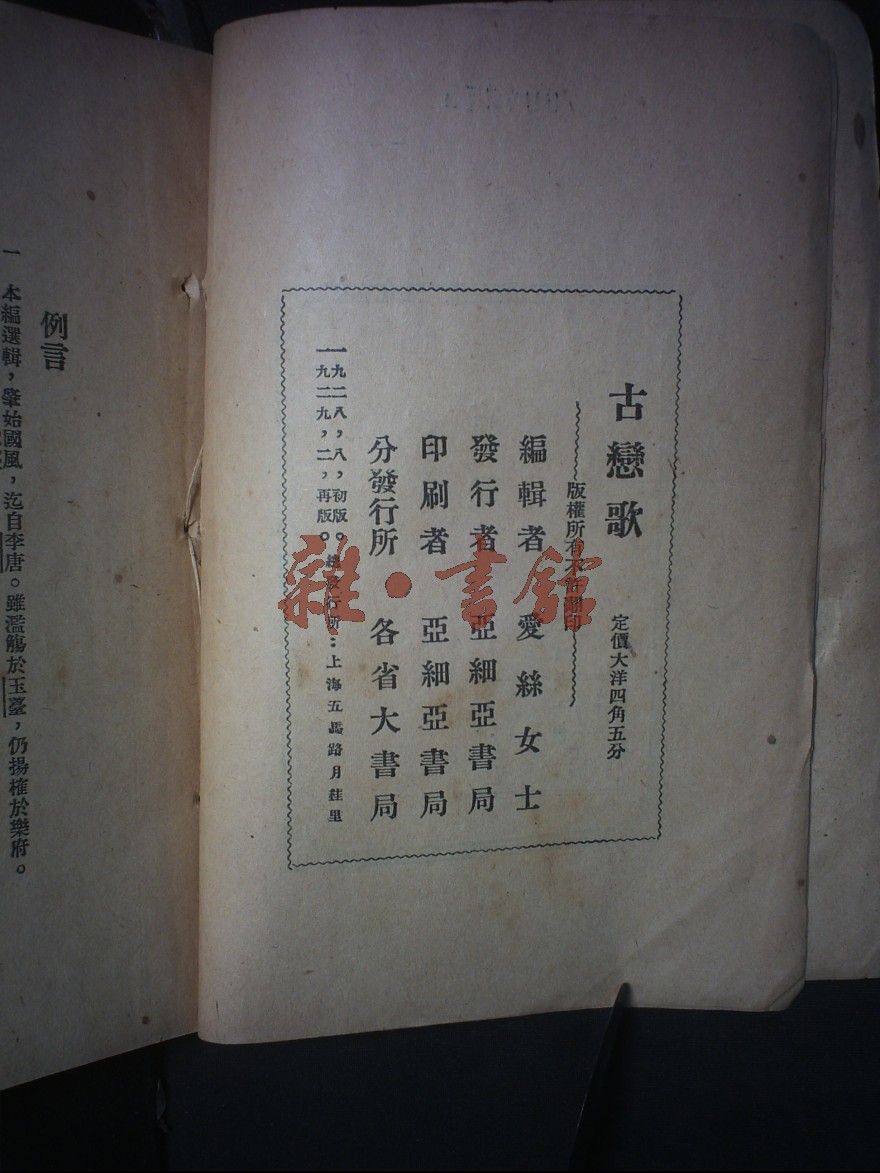 古戀歌
定價大洋四角五分
版權所有不許翻印
編輯者 愛絲女士
發行者 亞細亞書局
印刷者 亞細亞書局
分發行所 各省大書局
一九二八，八，初版。
一九二九，二，再版。
總發行所：上海五馬路月桂里
例言
一 本編選輯，肇始國風，迄自李唐。雖濫觴於玉臺，仍揚榷於樂府。
雜·書館